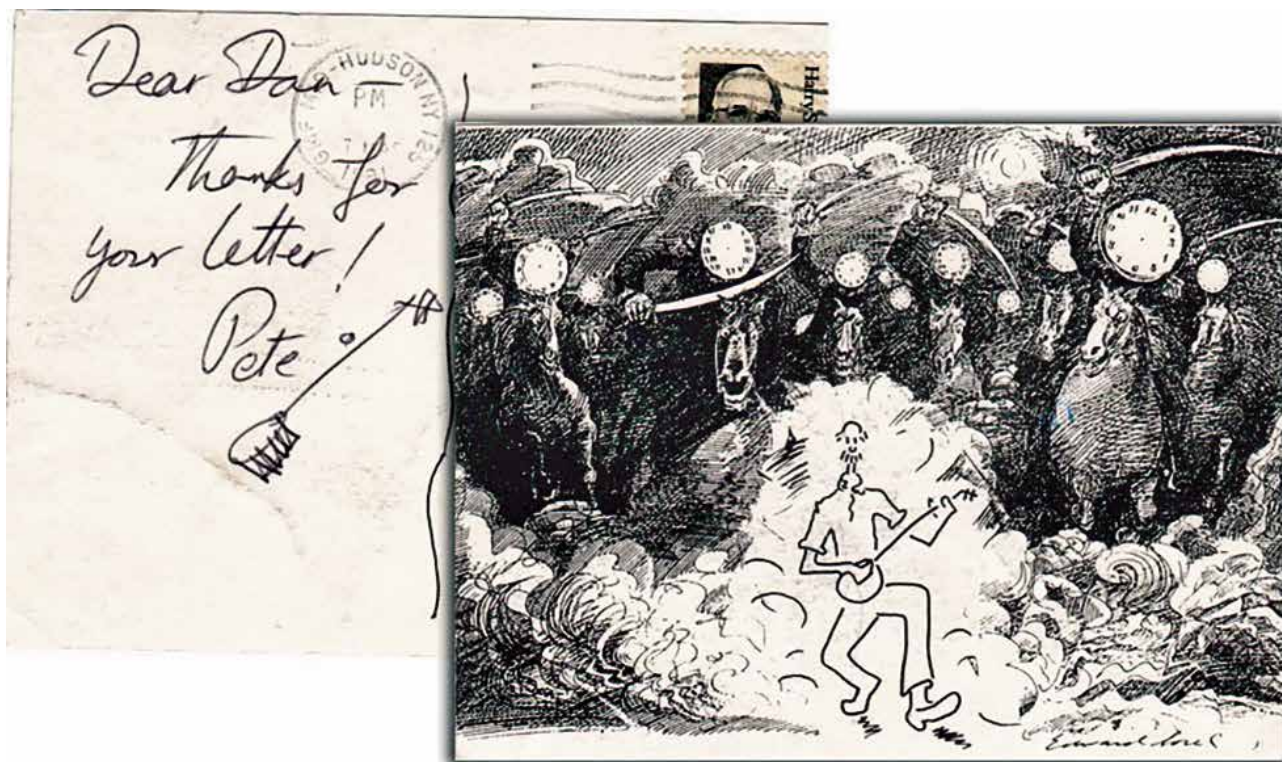 Dear Dan —
Thanks for
your letter!
Pete
MID-HUDSON NY 125
PM
Harry S
Edward Sorel